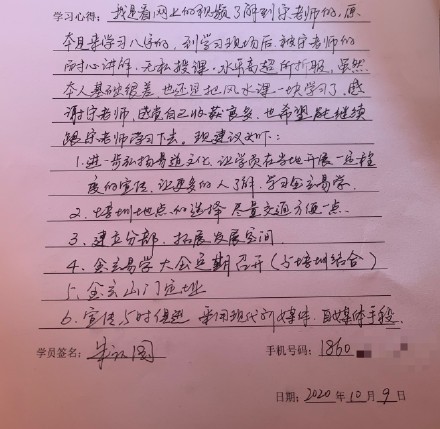 学习心得：我是看网上的视频了解到宋老师的，原
本是来学习八字的，到学习现场后，被宋老师的
耐心讲解，无私授课，水平高超所折服，虽然
本人基础很差，也还是把风水课一块学习了，感
谢宋老师，感觉自己收获良多，也希望能继续
跟宋老师学习下去。现建议如下：
1.进一步弘扬易道文化，让学员在当地开展一定程
度的宣传，让更多的人了解、学习金玄易学。
2、培训地点的选择尽量交通方便一点。
3、建立分部，拓展发展空间
4、金玄易学大会定期召开(与培训结合)
5、金玄山门定址
6、宣传与时俱进，采用现代新媒体、自媒体手段。
学员签名： 手机号码：1860
日期：2020年10月9日